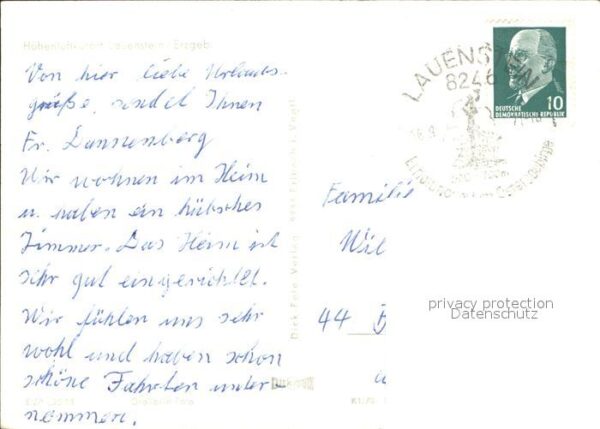 Höhenluftkurort Lauenstein, Erzgeb.
Von hier liebe Urlaubs-
grüße, sendet Ihnen
Fr. Dannenberg
Wir wohnen im Heim
u. haben ein hübsches
Zimmer. Das Heim ist
sehr gut eingerichtet.
Wir fühlen uns sehr
wohl und haben schon
schöne Fahrten unter-
nommen.
Dick Foto-Verlag
LAUENSTEIN
8246
DEUTSCHE
DEMOKRATISCHE REPUBLIK
10
Familie
Wil
44 B
privacy protection
Datenschutz